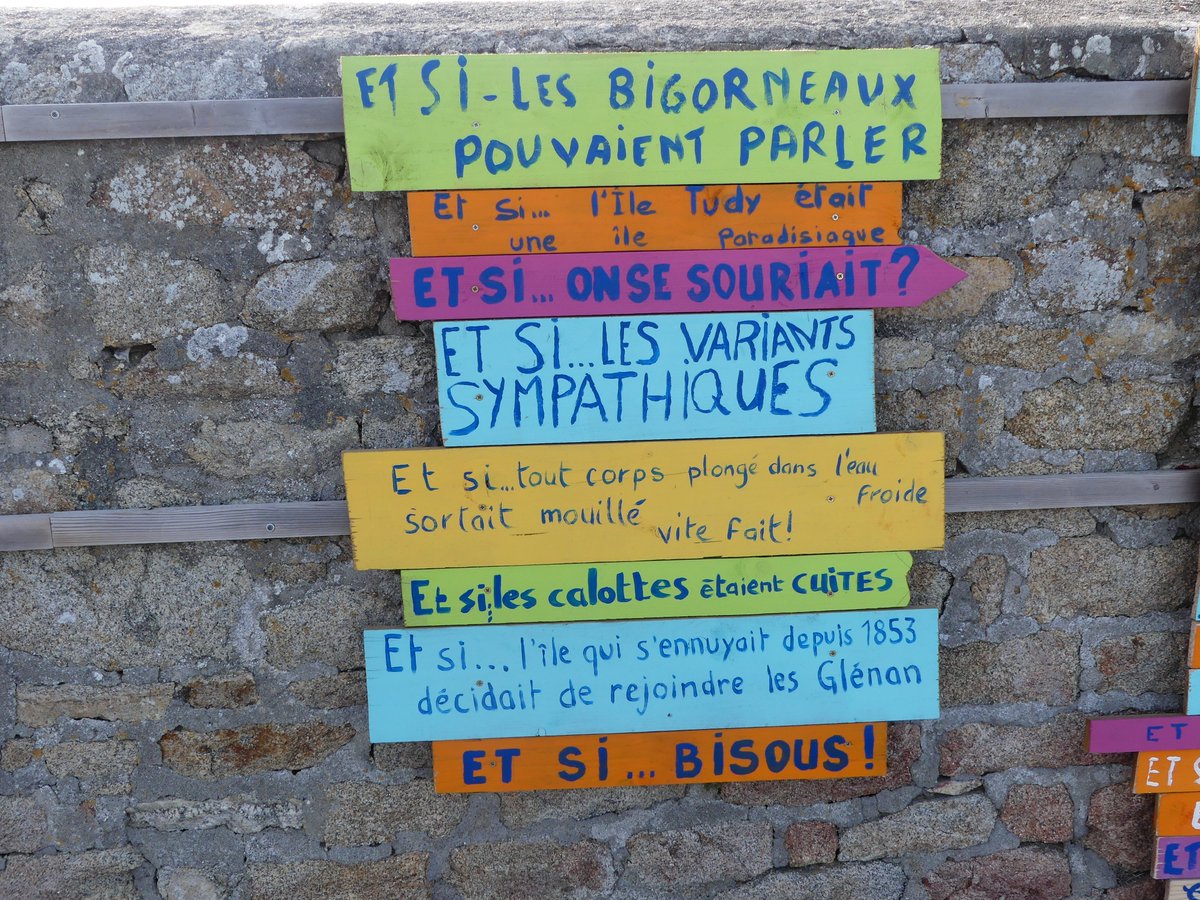 ET SI - LES BIGORNEAUX
POUVAIENT PARLER
Et si... l'Île Tudy était
une île paradisiaque
ET SI... ON SE SOURIAIT?
ET SI...LES VARIANTS
SYMPATHIQUES
Et si...tout corps plongé dans l'eau
froide
sortait mouillé
vite fait!
Et si, les calottes étaient CUITES
Et si... l'île qui s'ennuyait depuis 1853
décidait de rejoindre les Glénan
ET SI... BISOUS!
ET
ET
ET